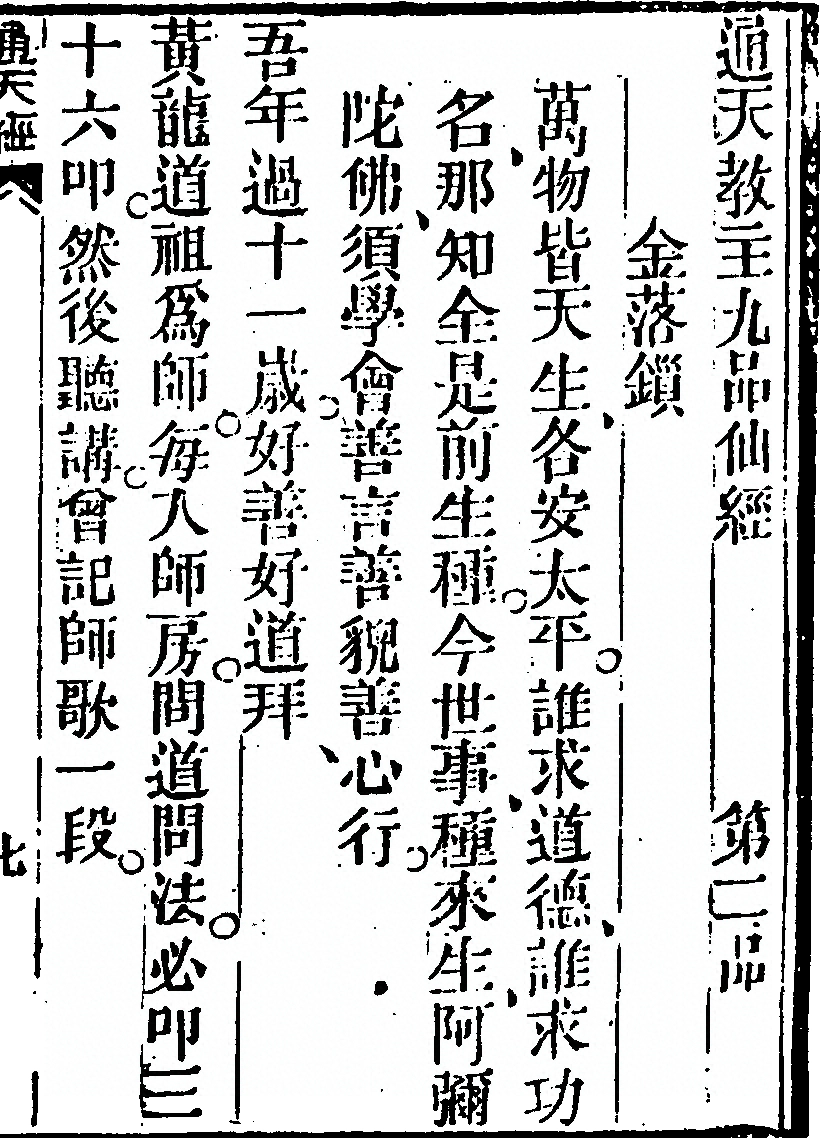 通天教主九品仙經 第二品
金落鎖
萬物皆天生、各安太平。誰求道德、誰求功
名、那知全是前生種。今世事、種來生、阿彌
陀佛、須學會。善言善貌善心、行。
吾年過十一歲。好善好道。拜
黃龍道祖爲師。每入師房。問道問法。必叩三
十六叩。然後聽講。曾記師歌一段。
通天經
七